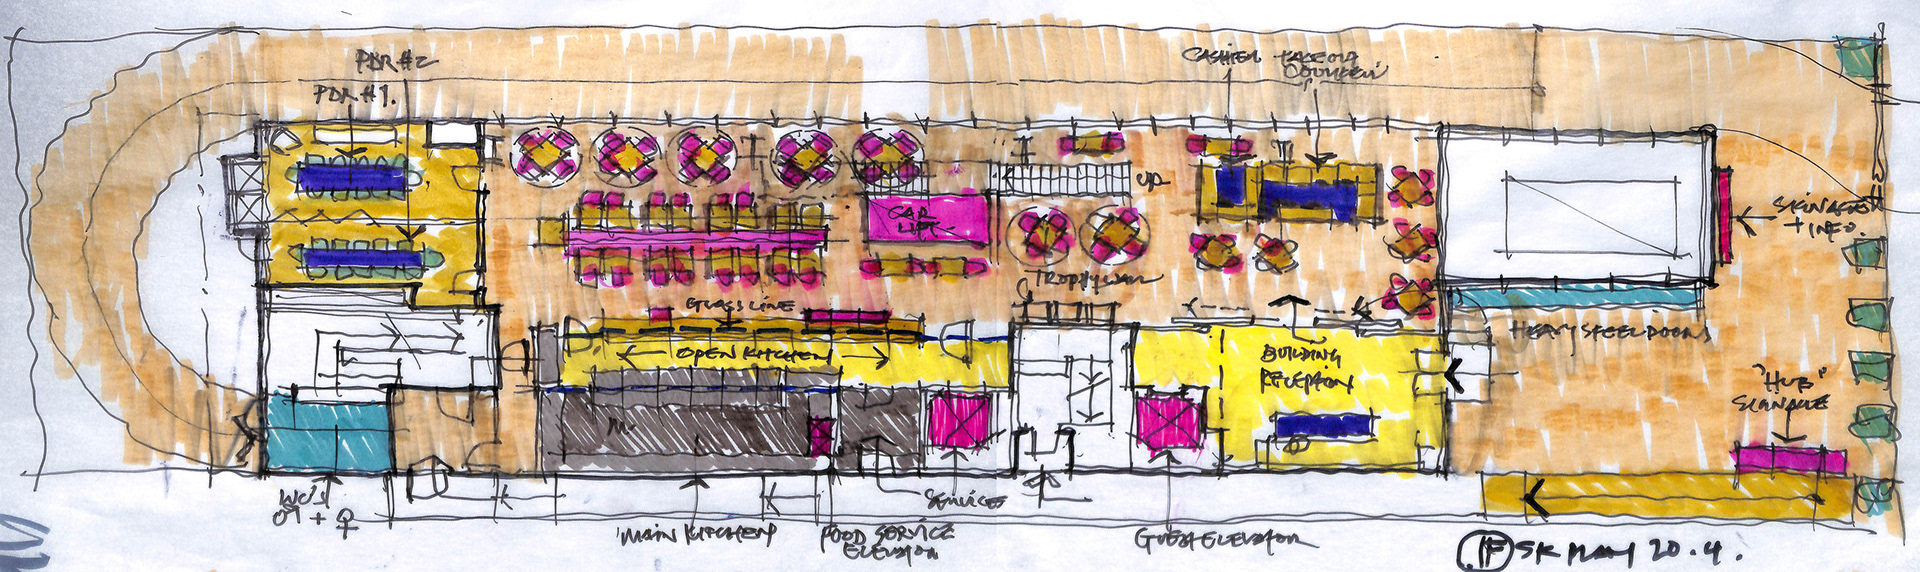 PDR #2
PDR #1.
CASHIER
TAKEOUT
COUNTER
UP
CAR
LIFT
TROPHY WALL
GLASS LINE
OPEN KITCHEN
BUILDING
RECEPTION
SIGNAGE
+ INFO.
HEAVY STEEL DOORS
"HUB"
SIGNAGE
WC'S
MAIN KITCHEN
FOOD SERVICE
ELEVATOR
SERVICE
GUEST ELEVATOR
SK
20.4.